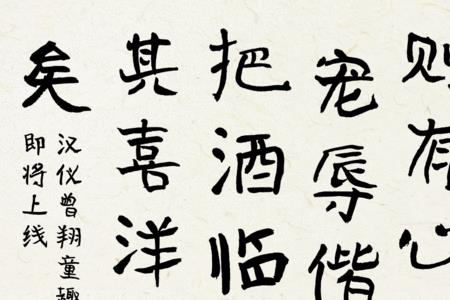 则有心
宠辱偕
把酒临
其喜洋
矣
汉仪曾翔童趣
即将上线